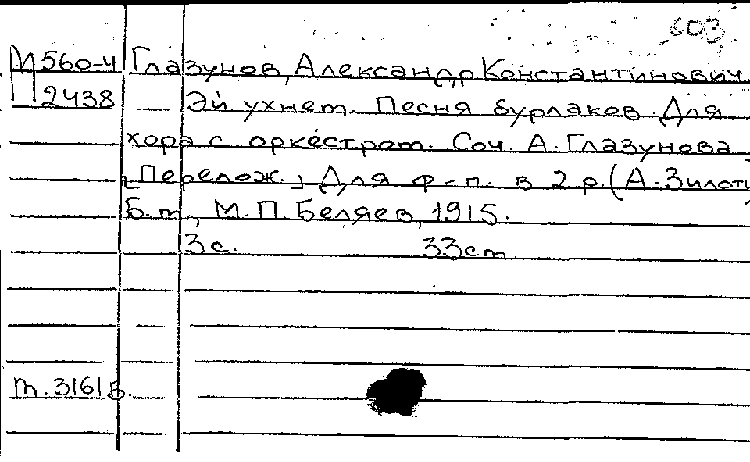 603
М560-4 Глазунов, Александр Константинович
П 2438 Эй ухнем. Песня бурлаков. Для
хора с оркестром. Соч. А. Глазунова
[Перелож.] Для ф-п. в 2 р. (А. Зилоти
Б.м., М.П. Беляев, 1915.
3с. 33см
т.3161в